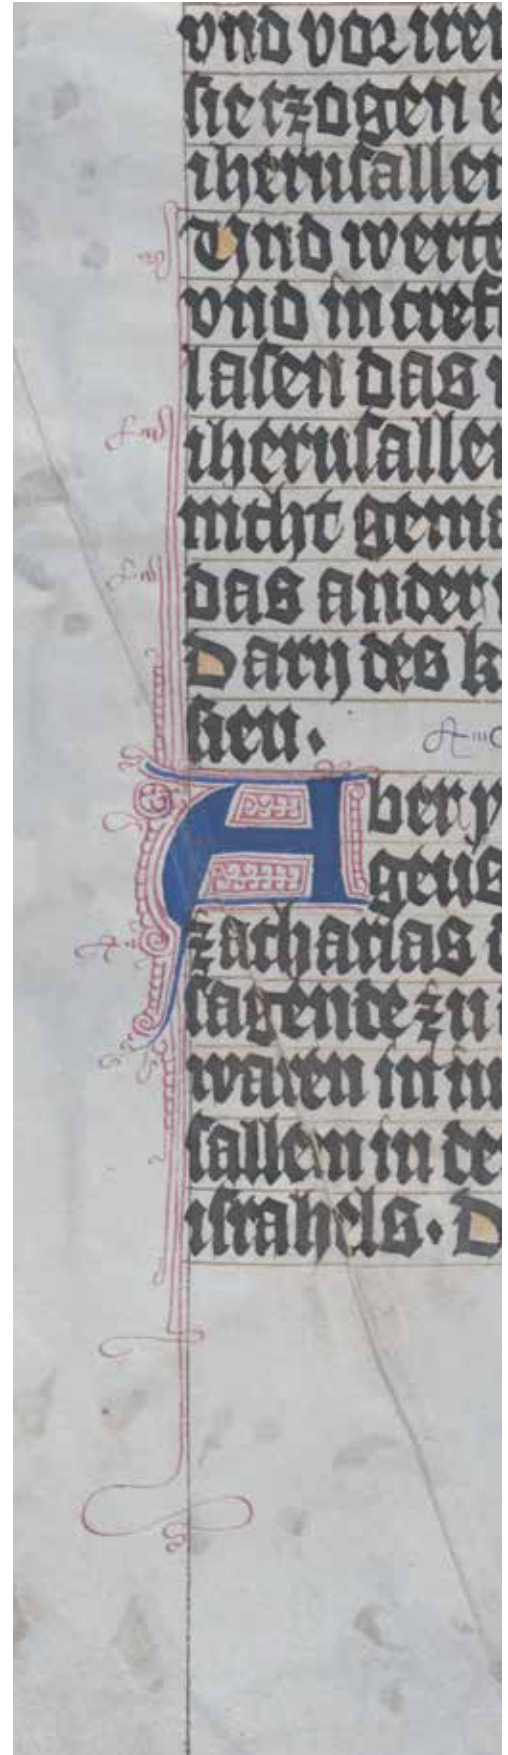 vnd vor iren
sie tzogen e
iherusallem
Vnd werte
vnd in treff
lasen das
iherusallem
nicht gema
das ander
Darij des k
sien.
Aber
geus
zacharias d
sagende zu i
waren in iu
sallem in de
israhels. D